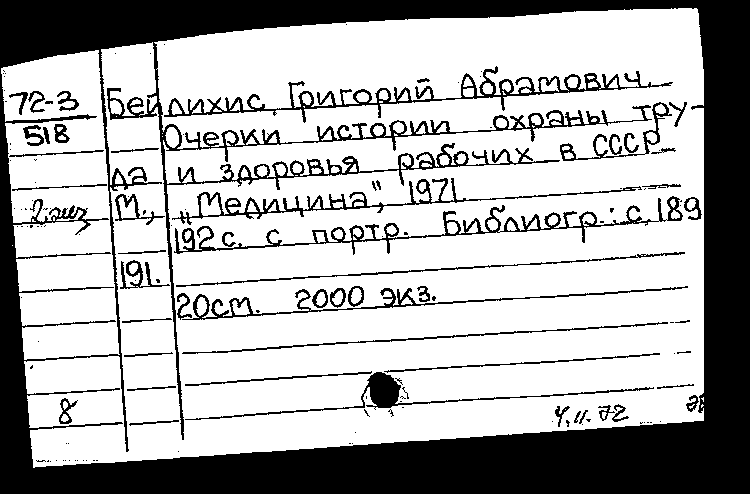 72-3 Бейлихис, Григорий Абрамович.
518 Очерки истории охраны тру-
да и здоровья рабочих в СССР
2 экз М., „Медицина", 1971.
192 с. с портр. Библиогр.: с. 189
191.
20см. 2000 экз.
8
4.11.72